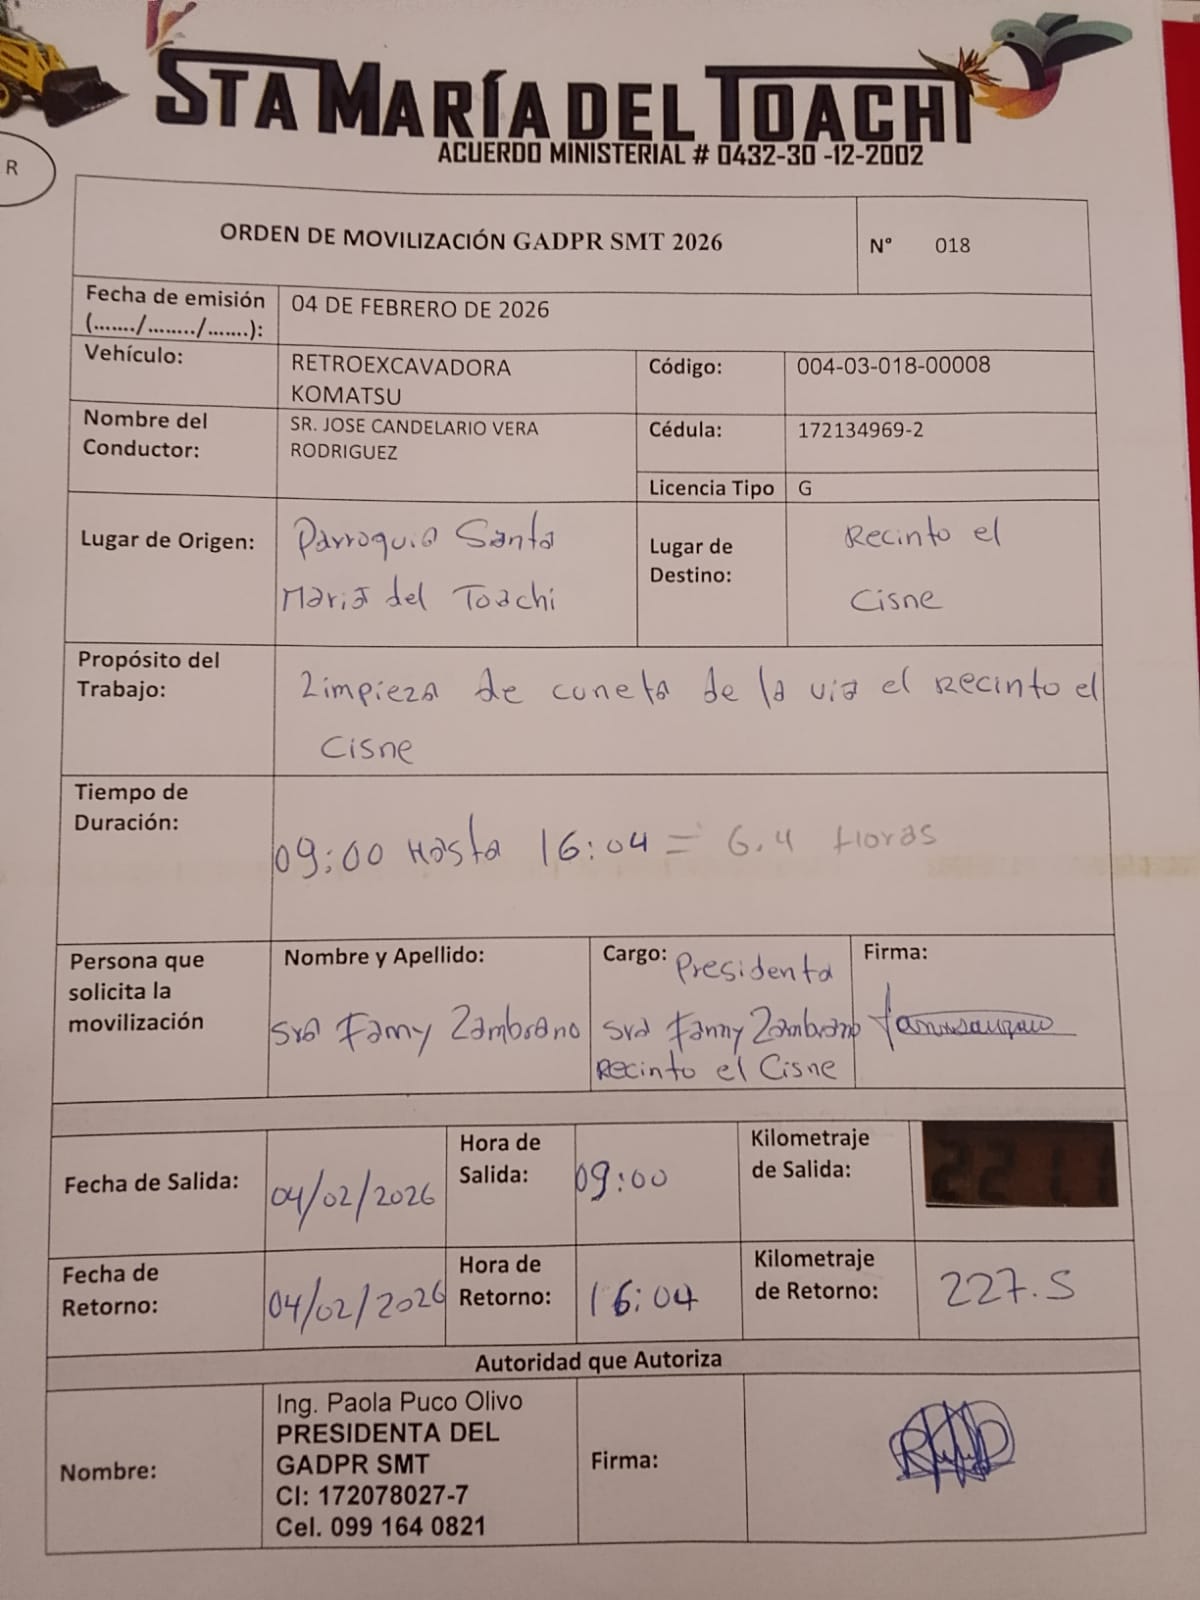 STA MARÍA DEL TOACHI
ACUERDO MINISTERIAL # 0432-30 -12-2002
R
ORDEN DE MOVILIZACIÓN GADPR SMT 2026
N° 018
Fecha de emisión
(......./......../.......):
04 DE FEBRERO DE 2026
Vehículo:
RETROEXCAVADORA
KOMATSU
Código:
004-03-018-00008
Nombre del
Conductor:
SR. JOSE CANDELARIO VERA
RODRIGUEZ
Cédula:
172134969-2
Licencia Tipo
G
Lugar de Origen:
Parroquia Santa
Maria del Toachi
Lugar de
Destino:
Recinto el
Cisne
Propósito del
Trabajo:
Limpieza de cuneta de la via el Recinto el
Cisne
Tiempo de
Duración:
09:00 Hasta 16:04 = 6.4 Horas
Persona que
solicita la
movilización
Nombre y Apellido:
Sra Fanny Zambrano
Cargo: Presidenta
Sra Fanny Zambrano
Recinto el Cisne
Firma:
Fecha de Salida:
04/02/2026
Hora de
Salida:
09:00
Kilometraje
de Salida:
221.1
Fecha de
Retorno:
04/02/2026
Hora de
Retorno:
16:04
Kilometraje
de Retorno:
227.5
Autoridad que Autoriza
Nombre:
Ing. Paola Puco Olivo
PRESIDENTA DEL
GADPR SMT
CI: 172078027-7
Cel. 099 164 0821
Firma: